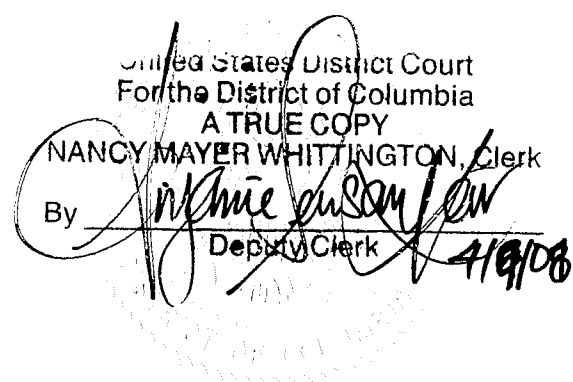 United States District Court
For the District of Columbia
A TRUE COPY
NANCY MAYER WHITTINGTON, Clerk
By
Deputy Clerk